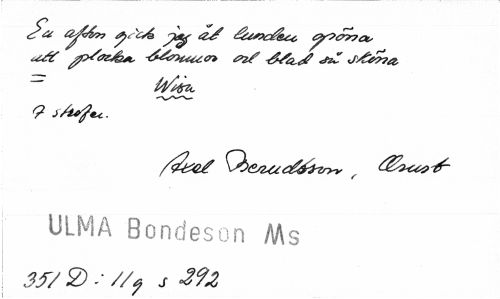 En afton gick jag åt lunden gröna
att plocka blommor och blad så sköna
=
Wisa
7 strofer.
Axel Berndtsson, Orust
ULMA Bondeson Ms
351 D: 11 q s 292